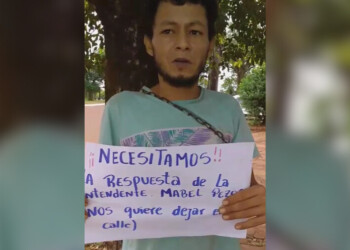 ¡¡NECESITAMOS!!
A RESPUESTA DE LA
NTENDENTE MABEL
NOS quiere dejar e
calle)